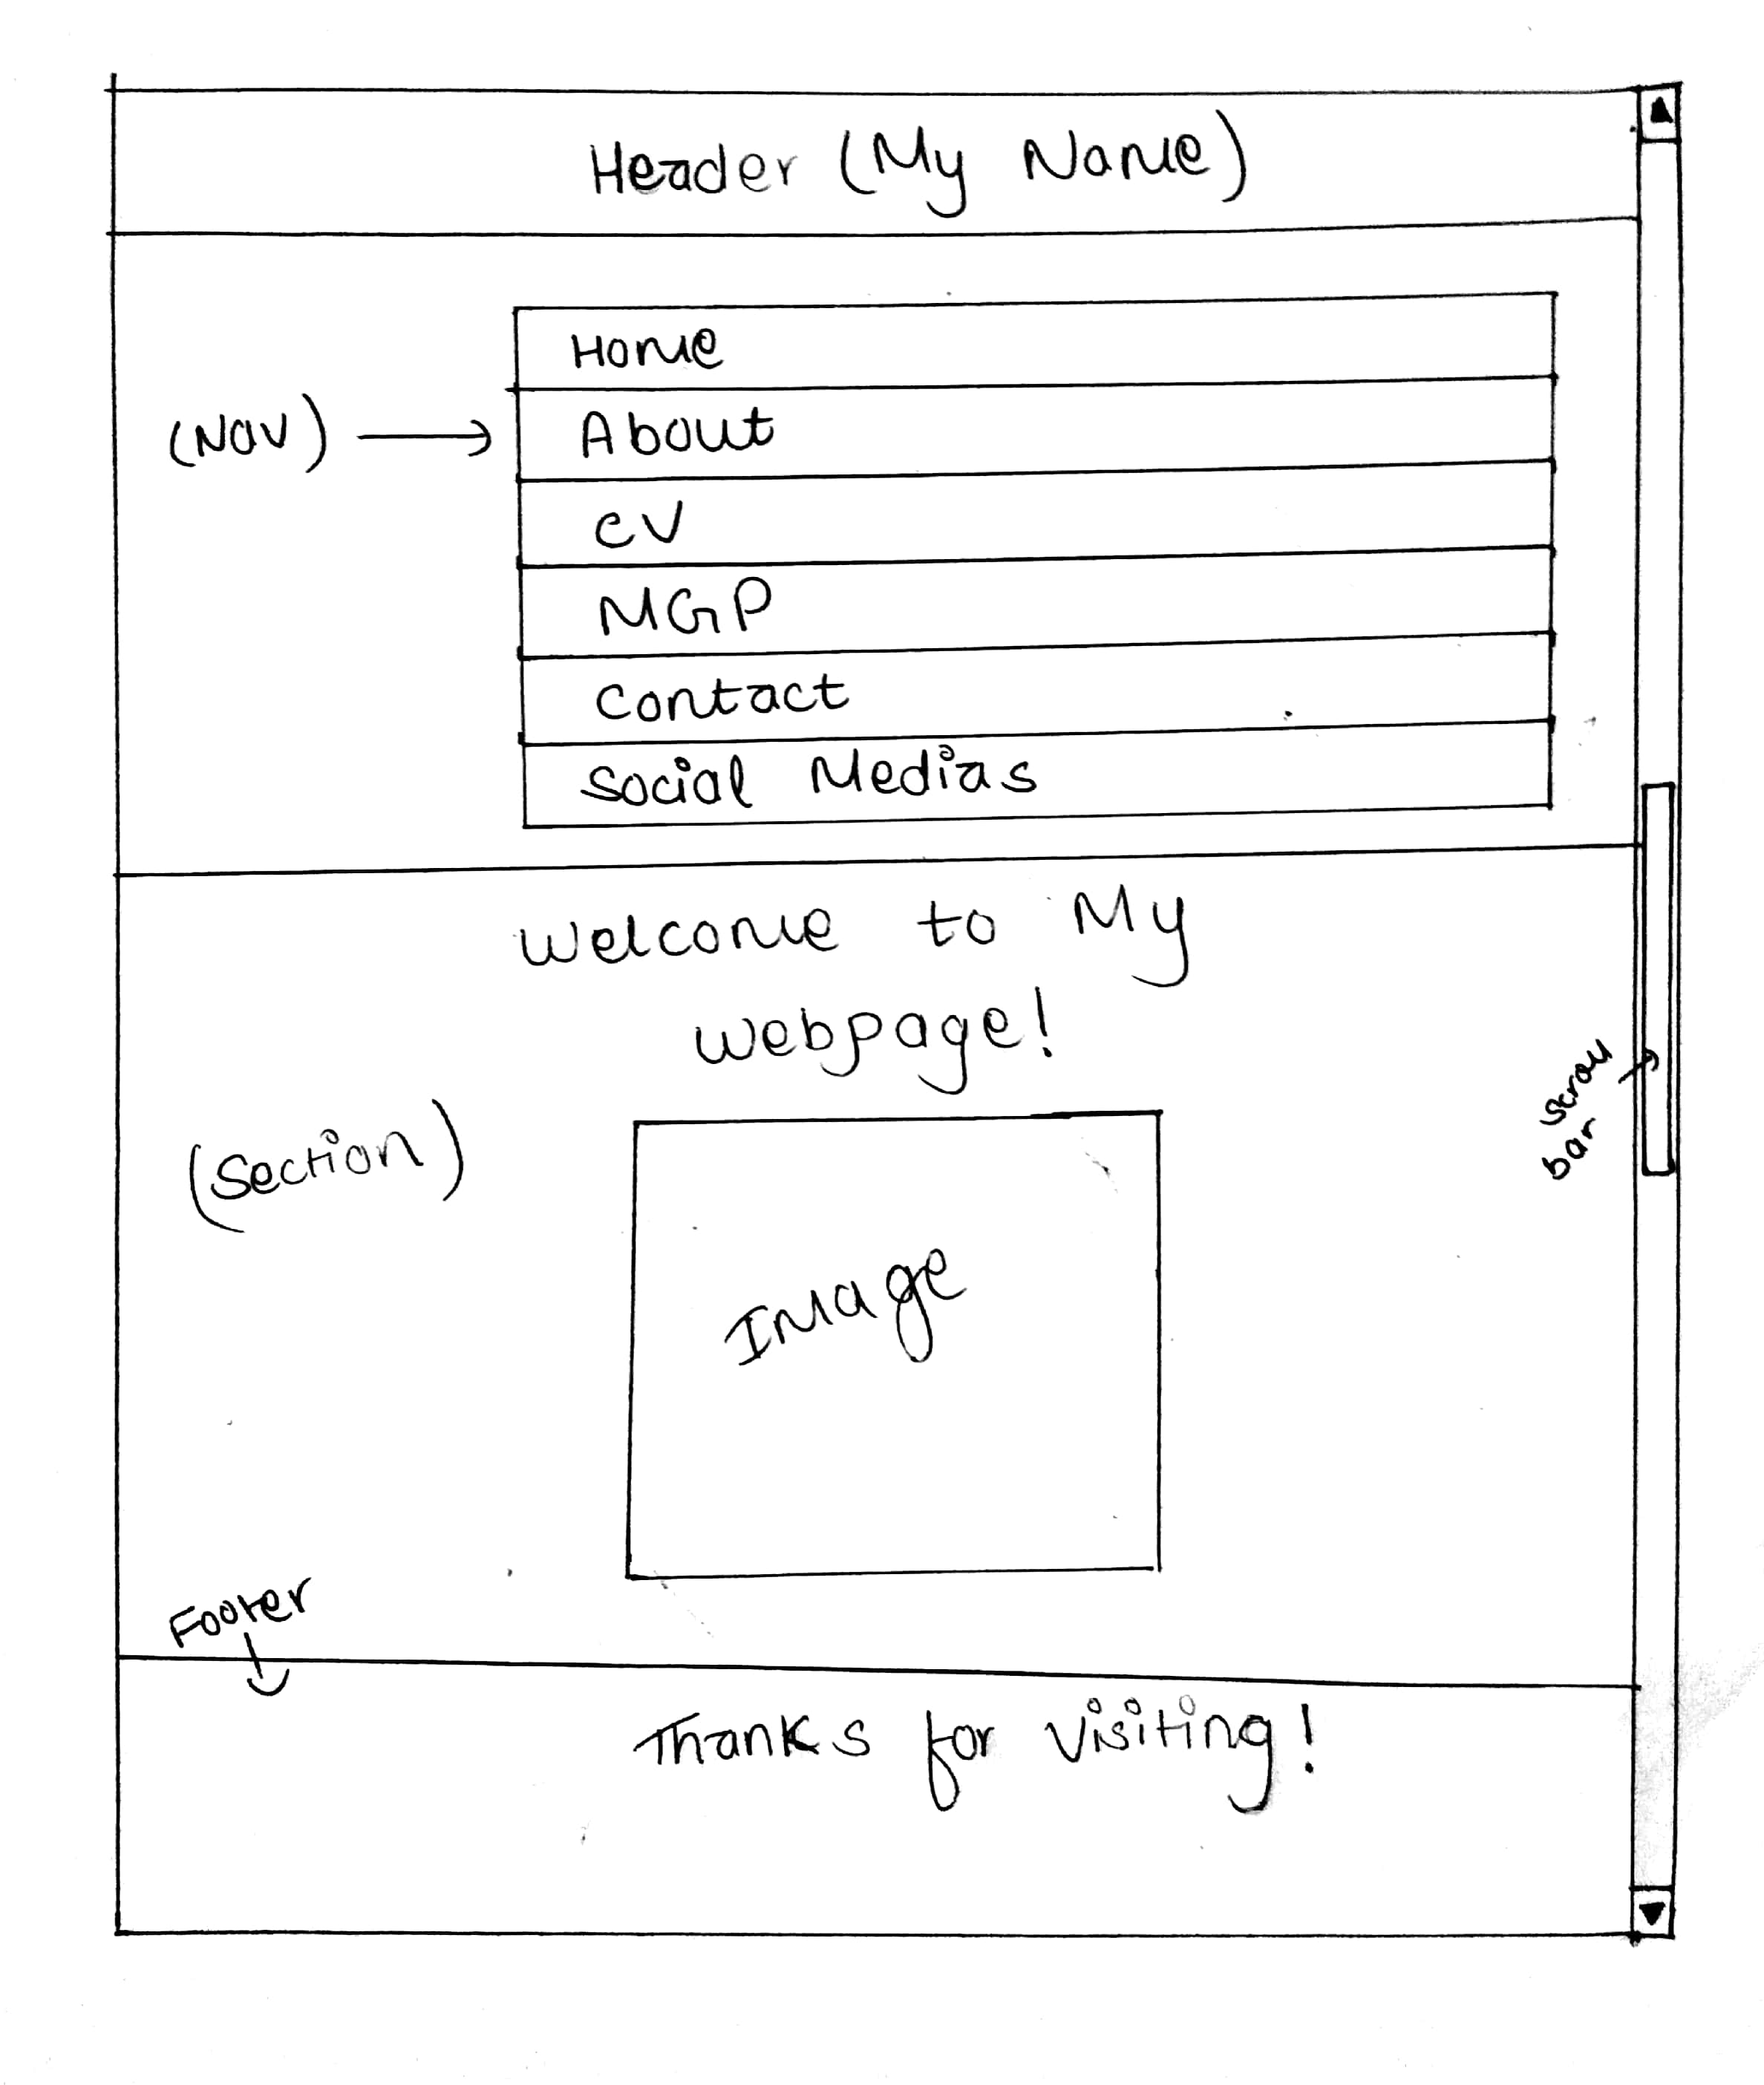 Header (My Name)
Home
(Nav)
About
CV
MGP
Contact
Social Medias
Welcome to My
Webpage!
(Section)
Scroll
bar
Image
Footer
Thanks for Visiting!